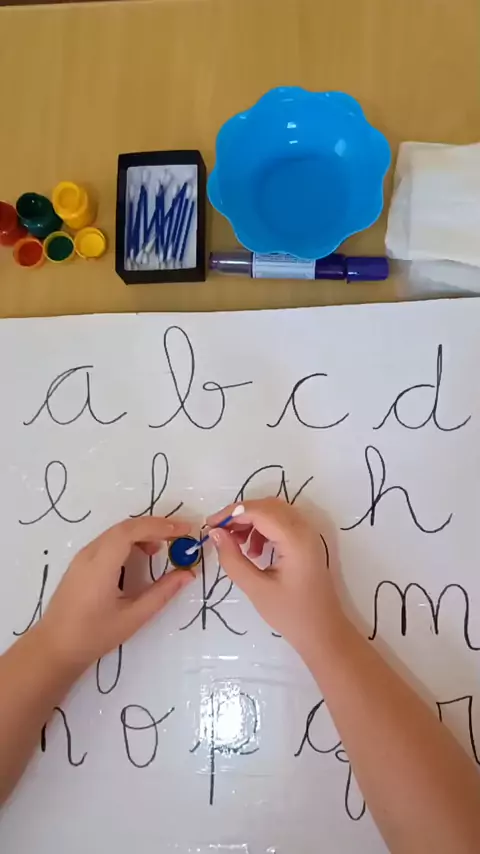 a b c d
e f g h
i j k l m
n o p q r